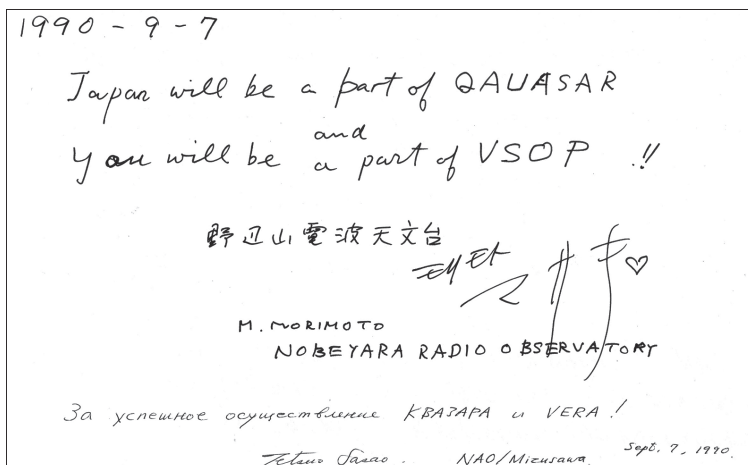 1990 - 9 - 7
Japan will be a part of QAUASAR
and
You will be a part of VSOP !!
野辺山電波天文台
M. MORIMOTO
NOBEYARA RADIO OBSERVATORY
За успешное осуществление КВАЗАРА и VERA!
Tetsuo Sasao. NAO/Mizusawa. Sept. 7, 1990.